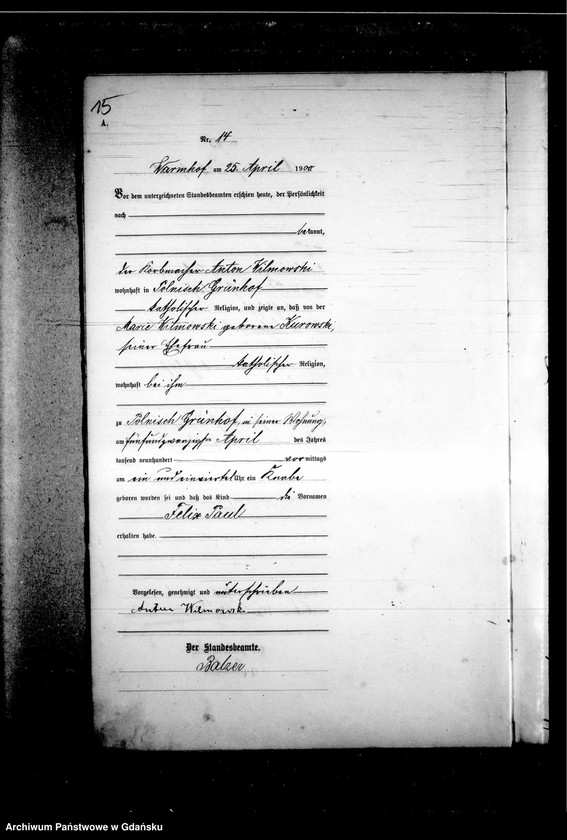 15
A.
Nr. 14
Warmhof am 25. April 1900
Vor dem unterzeichneten Standesbeamten erschien heute, der Persönlichkeit
nach
bekannt,
der Korbmacher Anton Wilmowski
wohnhaft in Polnisch Grünhof
katholischer Religion, und zeigte an, daß von der
Marie Wilmowski geborene Kurowski,
seiner Ehefrau
katholischer Religion,
wohnhaft bei ihm
zu Polnisch Grünhof, in seiner Wohnung,
am fünfundzwanzigsten April des Jahres
tausend neunhundert vormittags
um ein und einviertel Uhr ein Knabe
geboren worden sei und daß das Kind die Vornamen
Felix Paul
erhalten habe.
Vorgelesen, genehmigt und unterschrieben
Anton Wilmowski
Der Standesbeamte.
Balzer
Archiwum Państwowe w Gdańsku